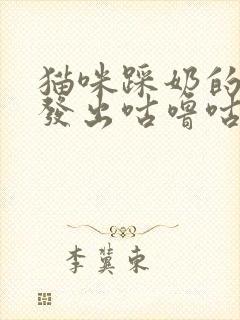 猫咪踩奶的
發出咕嚕咕
李冀東